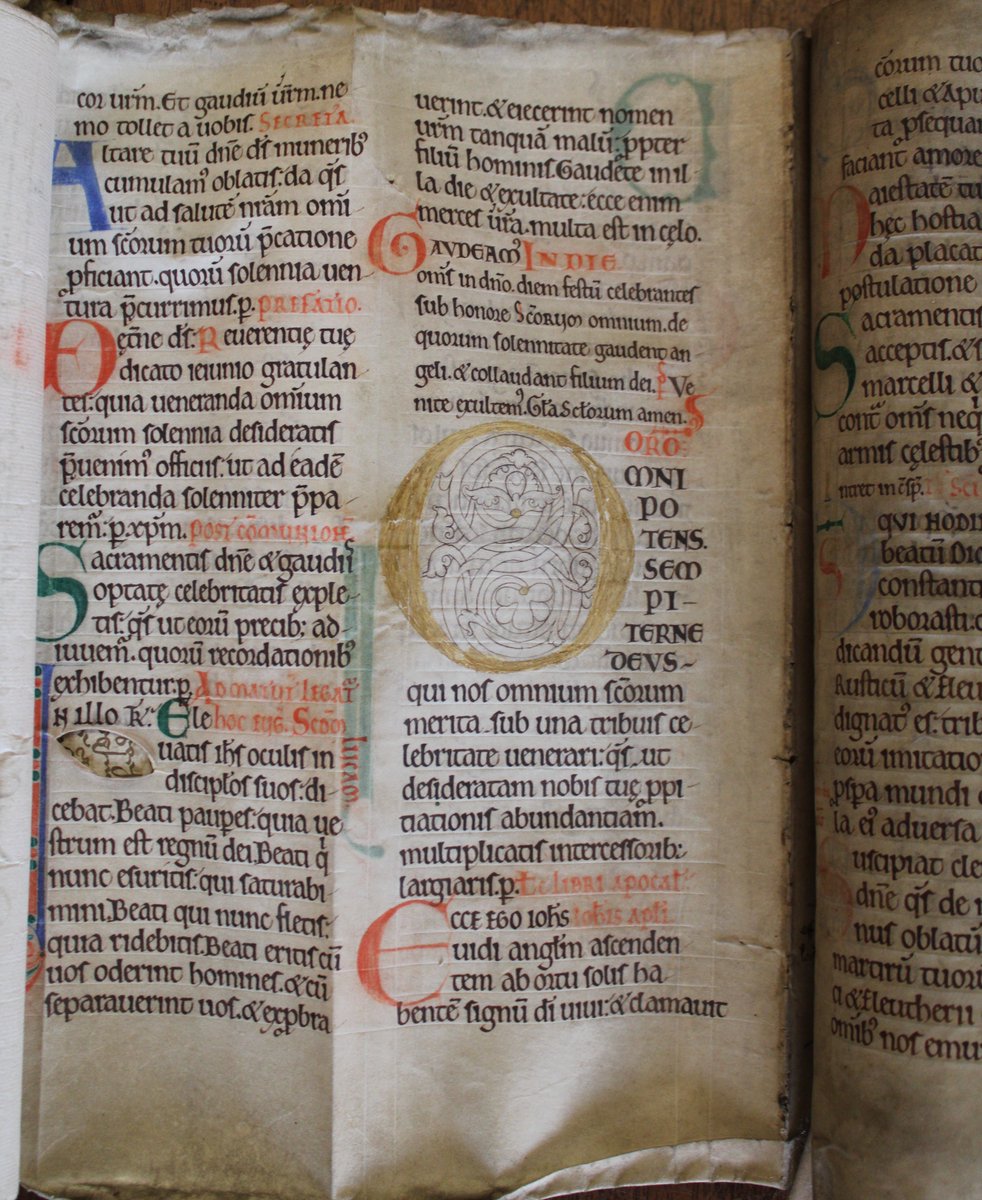 cor ur̄m. Et gaudiū ur̄m. ne
mo tollet a uobis. Secreta.
Altare tuū dn̄e ds̄ muneribꝰ
acumulamꝰ oblatis. da qs̄
ut ad salutē nr̄am om̄i
um sc̄orum tuorū p̄catione
ꝓficiant. quorū solennia uen
tura p̄currimus. p. Prefatio.
Eterne ds̄. Reuerentię tuę
dicato ieiunio gratulan
tes. quia ueneranda om̄ium
sc̄orum solennia desideratis
p̄uenimꝰ officiis. ut ad eadē
celebranda solenniter p̄pa
remꝰ. p. xp̄m. post cōmunionē
Sacramentis dn̄e & gaudiis
optatę celebritatis exple
tis. qs̄ ut eorū precib; ad
iuuemꝰ. quorū recordationibꝰ
exhibentur. p.
N illo t̄. Ele
uatis ih̄s oculis in
discip̄los suos. di
cebat. Beati pauꝑes. quia ue
strum est regnū dei. Beati q̄
nunc esuritis. qui saturabi
mini. Beati qui nunc fletis.
quia ridebitis. Beati eritis cū
uos oderint homines. & cū
separauerint uos. & exꝓbra
uerint. & eiecerint nomen
ur̄m tanquā malū. ꝓpter
filiū hominis. Gaudete in il
la die & exultate. ecce enim
merces ur̄a. multa est in cęlo.
GAVDEAMꝰ In die
om̄s in dn̄o. diem festū celebrantes
sub honore Sc̄orum omnium. de
quorum solennitate gaudent an
geli. & collaudant filium dei. Ve
nite exultemꝰ. Gl̄a Sc̄orum amen.
ORO
OMNI
PO
TENS.
SEM
PI-
TERNE
DEVS-
qui nos omnium sc̄orum
merita. sub una tribuis ce
lebritate uenerari. qs̄. ut
desideratam nobis tuę ꝓpi
tiationis abundantiam.
multiplicatis intercessorib;
largiaris. p. Lc̄ libri apocal̄.
Ecce ego ioh̄s ioh̄is apl̄i.
uidi angl̄m ascenden
tem ab ortu solis ha
bentē signū di uiui. & clamauit
cōrum tuo
celli & Apu
ta ꝑsequa
faciant amore
maiestatē tu
hęc hostia
da placat
postulatione
Sacramentis
acceptis. & s
marcelli &
cont̄ om̄s neq
armis cęlestibꝰ
QVI HODI
beatū Dio
constanti
roborasti.
dicandū gent
Rusticū & Eleu
dignatꝰ es. trib
eorū imitatio
ꝓspa mundi
la eiꝰ aduersa
Suscipiat cle
dn̄e qs̄ de
nus oblatū
martirū tuor
ci & Eleutherii
om̄ibꝰ nos emu